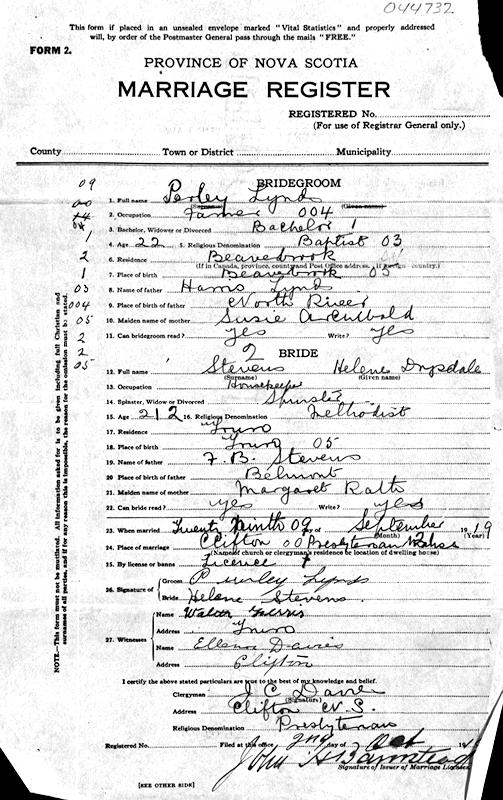 044732
This form if placed in an unsealed envelope marked "Vital Statistics" and properly addressed
will, by order of the Postmaster General pass through the mails "FREE."
FORM 2.
PROVINCE OF NOVA SCOTIA
MARRIAGE REGISTER
REGISTERED No.
(For use of Registrar General only.)
County Town or District Municipality
09
BRIDEGROOM
1. Full name Perley Lynds
(Surname) (Given name)
2. Occupation Farmer 004
3. Bachelor, Widower or Divorced Bachelor 1
4. Age 22 5. Religious Denomination Baptist 03
6. Residence Beaverbrook
(If in Canada, province, county and Post Office address, if foreign country.)
7. Place of birth Beaverbrook 05
8. Name of father Harris Lynds
9. Place of birth of father North River
10. Maiden name of mother Susie Archibald
11. Can bridegroom read? yes Write? yes
2
BRIDE
12. Full name Stevens Helene Drysdale
(Surname) (Given name)
13. Occupation Housekeeper
14. Spinster, Widow or Divorced Spinster
15. Age 21 2 16. Religious Denomination Methodist
17. Residence Truro
18. Place of birth Truro 05
19. Name of father F. B. Stevens
20. Place of birth of father Belmont
21. Maiden name of mother Margaret
22. Can bride read? yes Write? yes
23. When married Twenty Ninth 09 day of September 1919
(Month) (Year)
24. Place of marriage Clifton 00 Presbyterian Manse
(Name of church or clergyman's residence or location of dwelling house)
25. By license or banns Licence
26. Signature of Groom Purley Lynds
Bride Helene Stevens.
27. Witnesses Name Walter
Address Truro
Name Ellenor Davies
Address Clifton
I certify the above stated particulars are true to the best of my knowledge and belief.
Clergyman J C
(Signature)
Address Clifton N.S.
Religious Denomination Presbyterian
Registered No. Filed at this office 2nd day of Oct 191
John H Barnstead
Signature of Issuer of Marriage Licenses
[SEE OTHER SIDE]
09
00
1
2
1
03
004
05
2
2
05
NOTE.—This form must not be mutilated. All information asked for is to be given including full Christian and
surnames of all parties, and if for any reason this is impossible, the reason for the omission must be stated.